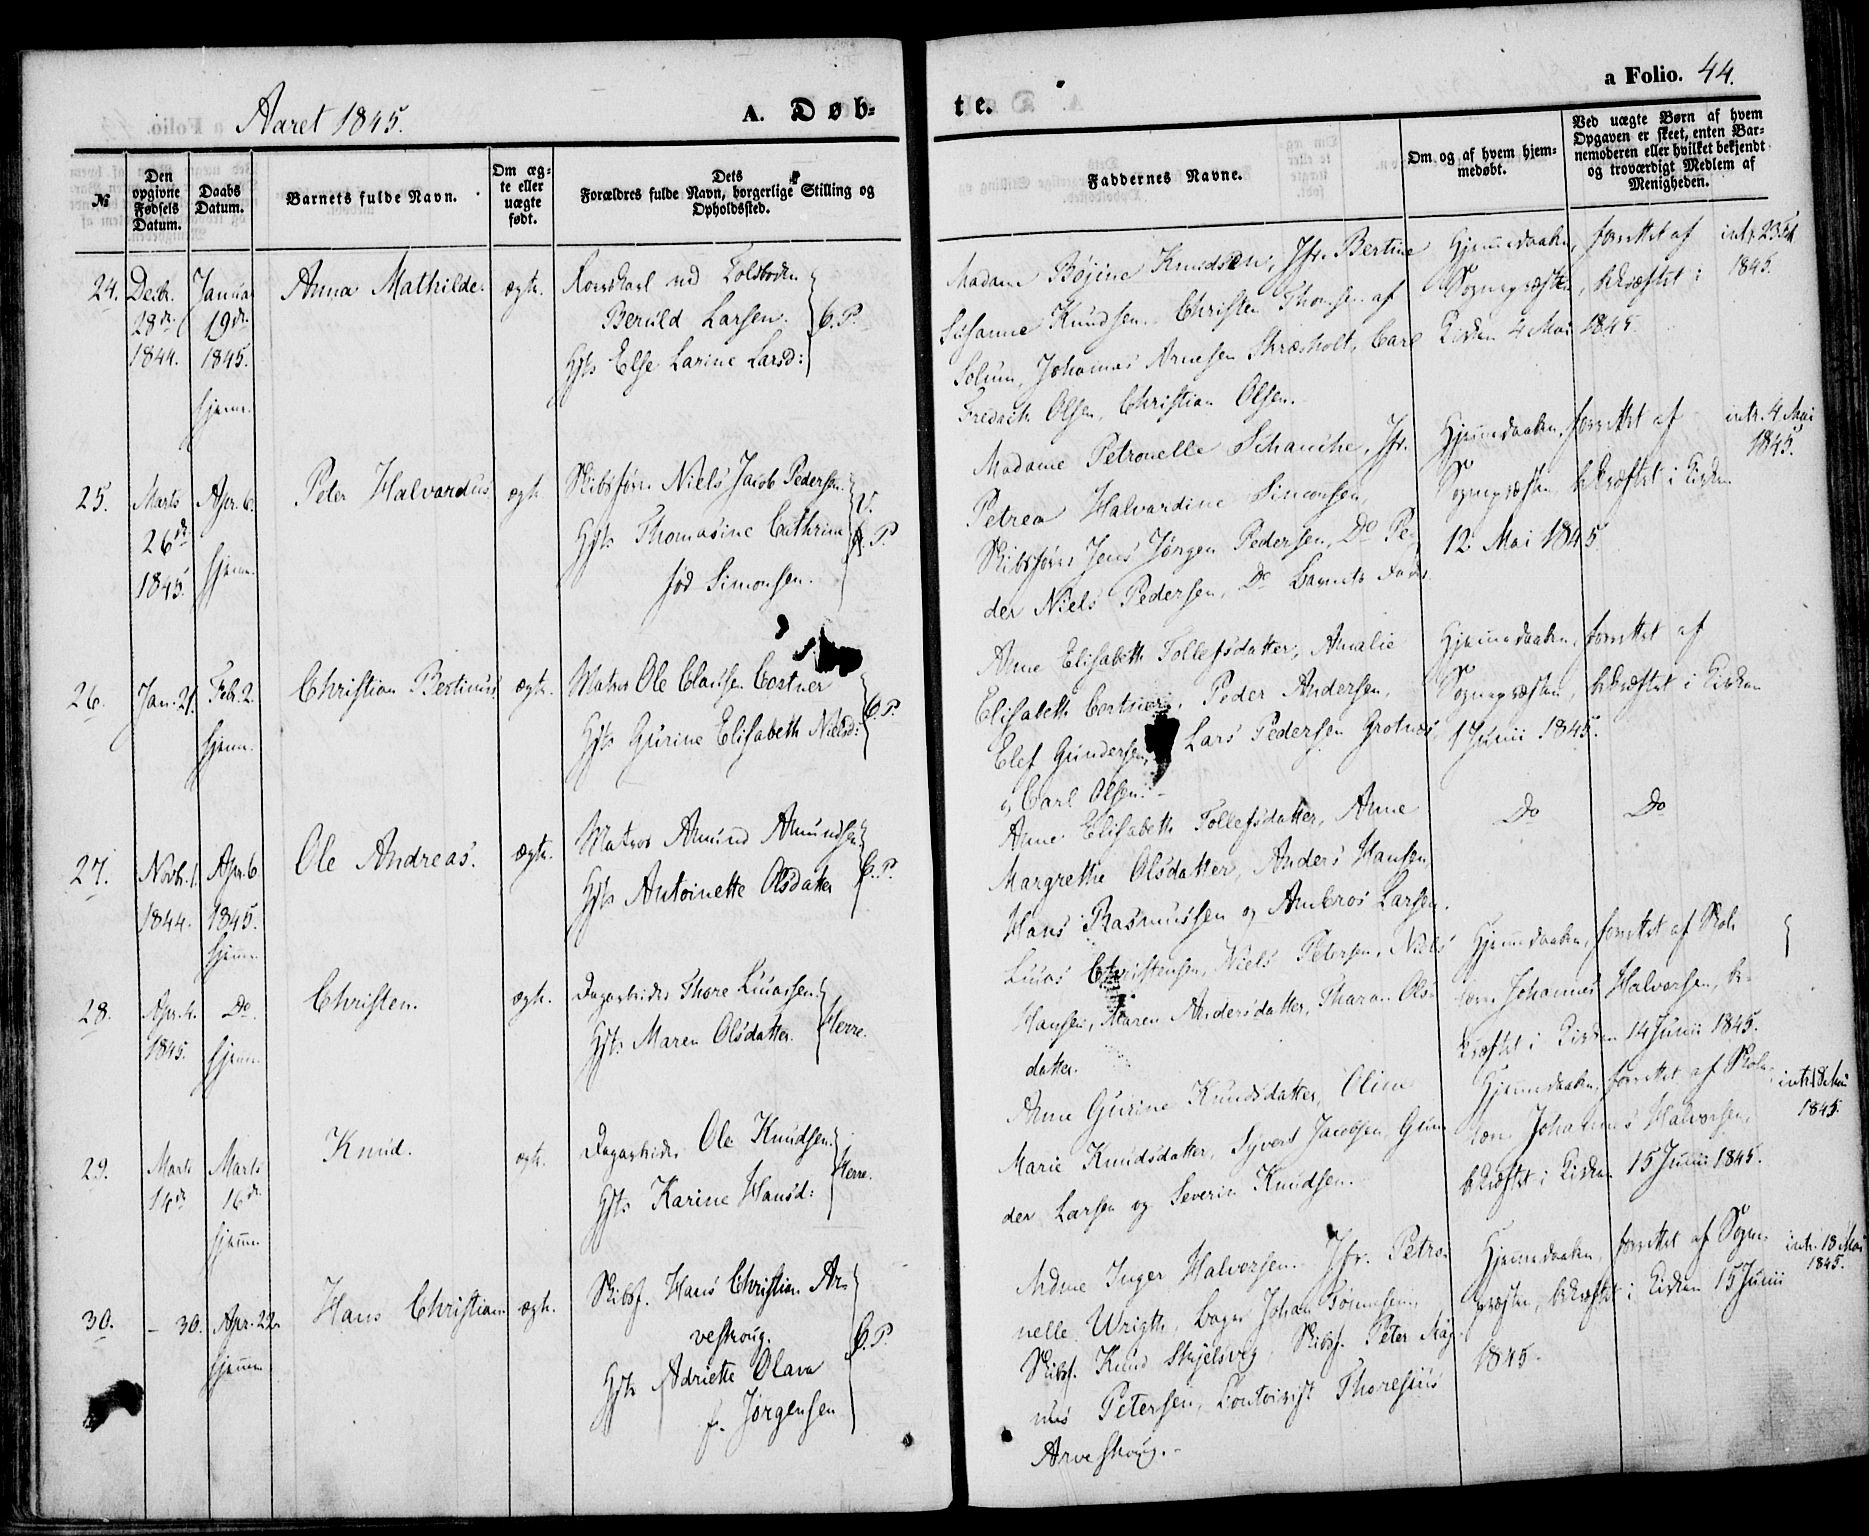 Aaret 1845.
A. Døb-
te.
a Folio. 44.
№
Den opgivne Fødsels Datum.
Daabs Datum.
Barnets fulde Navn.
Om ægte eller uægte født.
Dets Forældres fulde Navn, borgerlige Stilling og Opholdssted.
Faddernes Navne.
Om og af hvem hjemmedøbt.
Ved uægte Børn af hvem Opgaven er skeet, enten Barnemoderen eller hvilket bekjendt og troværdigt Medlem af Menigheden.
24.
Decbr. 28de 1844.
Januar 19de 1845. hjemme.
Anna Mathilde.
ægte.
Roerskarl ved Toldboden
Beruld Larsen.
Hst Else Larine Larsd:
C.P.
Madame Bøjine Knudsen, Jfr. Bertine
Susanne Knudsen. Christen Thomsen af
Solum, Johannes Arnesen Skræsholt, Carl
Fredrik Olsen, Christian Olsen.
Hjemmedaaben, forrettet af
Sognepræsten, bekræftet i
Kirken 4 Mai 1845.
intr. 23
1845.
25.
Marts 26de 1845.
Apr. 6. hjemme.
Peter Halvardus
ægte
Skibsfører Niels Jacob Pedersen
Hst Thomasine Cathrine
fød Simonsen.
V. P
Madame Petronelle Schanche, Jfr.
Petrea Halvardine Simonsen,
Skibsfører Jens Jørgen Pedersen, Do Pe-
der Niels Pedersen, Do Barnets Fader
Hjemmedaaben, forrettet af
Sognepræsten, bekræftet i Kirken
12 Mai 1845.
intr. 4 Mai
1845.
26.
Jan. 21.
Febr. 2. hjemme.
Christian Bertinus
ægte.
Matros Ole Clausen Cortner
Hst Gurine Elisabeth Nielsd:
C.P.
Anne Elisabeth Tollefsdatter, Amalie
Elisabeth Peder Andersen,
Elef Gundersen, Lars Pedersen Grotnæs
og Carl Olsen.
Hjemmedaaben, forrettet af
Sognepræsten, bekræftet i Kirken
1 Junii 1845.
27.
Novbr. 1. 1844.
Apr. 6 1845. hjemme
Ole Andreas.
ægte.
Matros Amund Amundsen
Hst Antoinette Olsdatter
C.P.
Anne Elisabeth Tollefsdatter, Anne
Margrethe Olsdatter, Anders Hansen,
Hans Rasmussen og Ambros Larsen.
Do Do
28.
Apr. 4. 1845.
Do. hjemme
Christen.
ægte.
Dagarbeider Thore Lucassen
Hst Maren Olsdatter.
Herre.
Lucas Christensen, Niels Petersen, Niels
Hansen, Maren Andersdatter, Tharan Ols-
datter.
Hjemmedaaben, forrettet af Skole-
lærer Johannes Halvorsen, be-
kræftet i Kirken 14 Junii 1845.
29.
Marts 14de
Marts 16de hjemme
Knud.
ægte.
Dagarbeider Ole Knudsen
Hst Karine Hansd:
Herre.
Anne Gurine Knudsdatter, Oline
Marie Knudsdatter, Syvert Jacobsen, Gun-
der Larsen og Severin Knudsen.
Hjemmedaaben, forrettet af Skole-
lærer Johannes Halvorsen,
bekræftet i Kirken 15 Junii 1845.
intr. 18 Mai
1845.
30.
- 30.
Apr. 22. hjemme
Hans Christian
ægte.
Skibsf. Hans Christian Ar-
veskoug.
Hst Adriette Olava
f. Jørgensen
C.P.
Mdme Inger Halvorsen. Jfr. Petro-
nelle Wrigth, Bager Johan Tønnesen,
Skibsf. Knud Skjelsvig, Skibsf. Peter Mag-
nus Petersen, Contoirist Thoresius
Arveskoug.
Hjemmedaaben, forrettet af Sogne-
præsten, bekræftet i Kirken 15 Junii
1845.
intr. 18 Mai
1845.